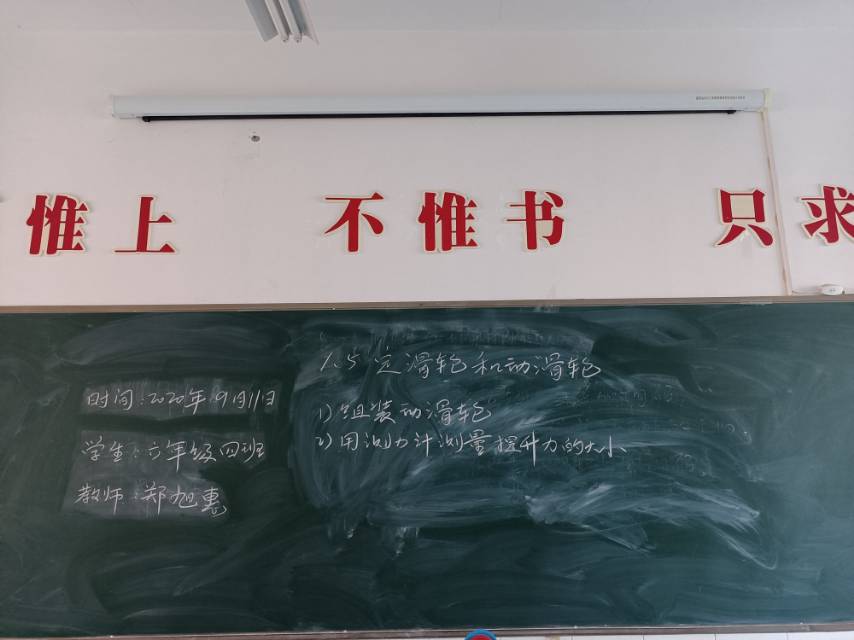 惟上 不惟书 只求
1.5 定滑轮和动滑轮
1)组装动滑轮
2)用测力计测量提升力的大小
时间:2020年9月11日
学生:六年级四班
教师:郑旭惠